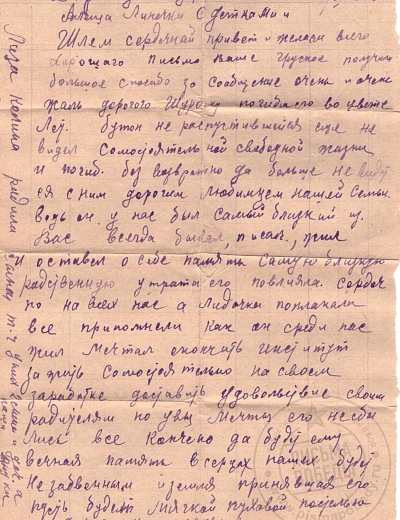 Линочки с детками и
Шлем сердечный привет и желаем всего
хорошаго письмо ваше грусное получили
большое спосибо за сообщение очень и очень
жаль дорогого Шуру погибшего во цвете
Лет. бутон не распустившейся еще не
видел Сомостоятельной свободной жизни
и погиб. без возвратно да больше не виду
ся с ним дорогим Любимцем нашей Семьи
ведь он у нас был Самый близкий из
Вас всегда бывал, писал, жил
и оставел о себе память Самую близкую
родственную утрата его повлияла. Сердеч
но на всех нас а Лидочка поплакали
все припомнели как он среди нас
жил Мечтал окончить инститut
за жить Сомостоятельно на своем
зароботке доставить удовольствие своим
родителям но увы Мечты его не сбы
лись все Кончено да будет ему
вечная память в серцах наших будет
Незабвенным и земля принявшая его
пусть будет мягкой пуховой постелью
Лиза Копина родила